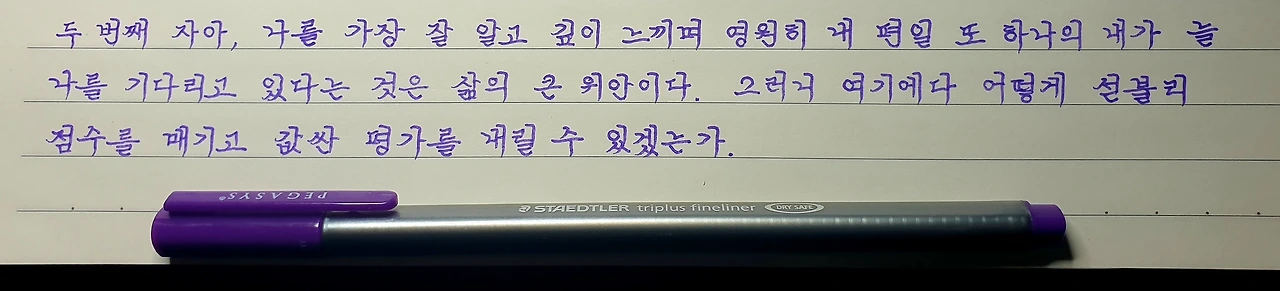 두 번째 자아, 나를 가장 잘 알고 깊이 느끼며 영원히 내 편일 또 하나의 내가 늘
나를 기다리고 있다는 것은 삶의 큰 위안이다. 그러니 여기에다 어떻게 섣불리
점수를 매기고 값싼 평가를 내릴 수 있겠는가.
PEGASYS®
STAEDTLER triplus fineliner DRY SAFE